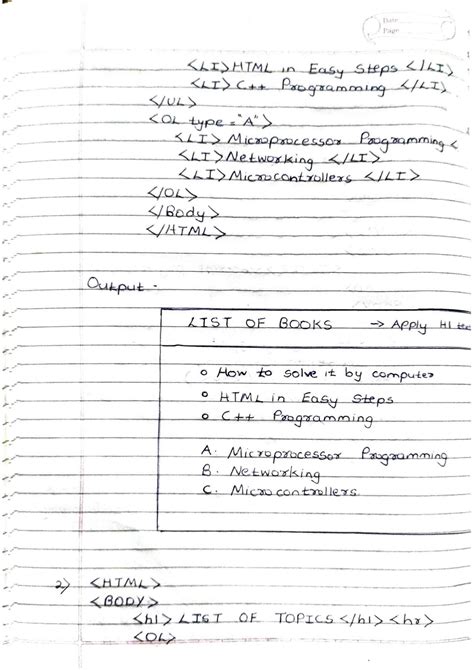 Date
Page
<LI>HTML in Easy Steps </LI>
<LI>C++ Programming </LI>
</UL>
<OL type="A">
<LI>Microprocessor Programming <
<LI>Networking </LI>
<LI>Microcontrollers </LI>
</OL>
</Body>
</HTML>
Output -
LIST OF BOOKS → Apply H1
o How to solve it by computer
o HTML in Easy Steps
o C++ Programming
A. Microprocessor Programming
B. Networking
C. Microcontrollers
2) <HTML>
<BODY>
<h1> LIST OF TOPICS </h1> <hr>
<OL>